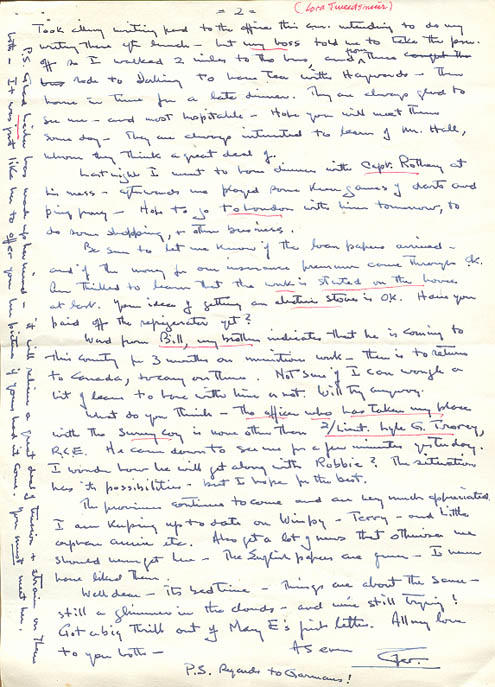 - 2 -
(Lord Tweedsmuir)
Took along writing pad to the office this aft. intending to do my
writing there aft lunch - but my boss told me to take the pm.
off so I walked 2 miles to the bus, and from there caught the
bus rode to Dorking to have tea with Haywards - Then
home in time for a late dinner. They are always glad to
see me - and most hospitable - Hope you will meet them
some day - They are always interested to learn of Mr. Hall,
whom they think a great deal of.
Last night I went to have dinner with Capt. Rothery at
his mess - afterwards we played some keen games of darts and
ping pong - Hope to go to London with him tomorrow, to
do some shopping, & other business.
Be sure to let me know if the loan papers arrived -
and if the money for our insurance premium came through O.K.
Am thrilled to learn that the work is started on the house
at last. Your idea of getting an electric stove is OK. Have you
paid off the refrigerator yet?
Word from Bill, my brother indicates that he is coming to
this country for 3 months on munition work - then is to return
to Canada, to carry on there. Not sure if I can wangle a
bit of leave to be with him or not. Will try anyway.
What do you think - The officer who has taken my place
with the Survey Coy - none other than 2/Lieut. Lyle G. Trorey,
R.C.E. He came down to see me for a few minutes yesterday.
I wonder how he will get along with Robbie? The situation
has its possibilities - but I hope for the best.
The provinces continue to come and are very much appreciated.
I am keeping up to date on Wimpy - Terry - and Little
orphan annie etc. Also get a lot of news that otherwise we
should never get here - The English papers are grim - I never
have liked them.
Well dear - its bedtime - Things are about the same -
still a glimmer in the clouds - and we're still trying!
Got a big thrill out of Mary E's first letter. All my love
to you both -
As ever
P.S. Regards to Garmans!
P.S. Glad has made up her mind - it will relieve a great deal of tension & strain on them
both - It was just like her to offer you her picture if your hadn't come. You must meet her.